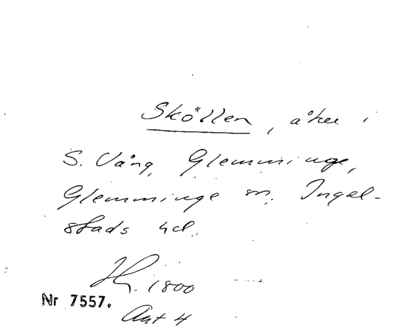 Sköllen, åker i
S. Vång, Glemminge,
Glemminge sn, Ingel-
stads hd.
H. 1800
Nr 7557.
Akt 4